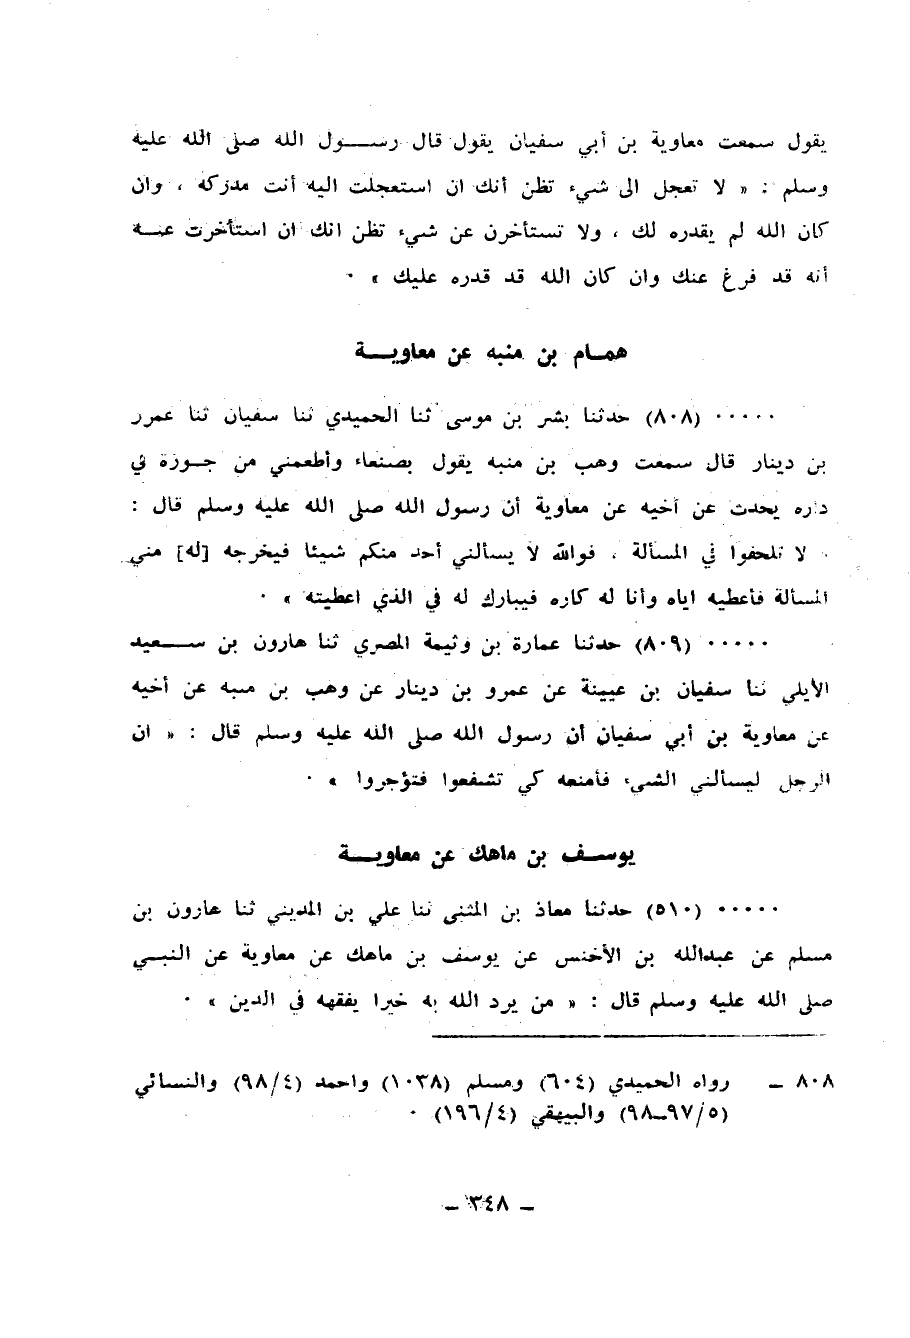 يقول سمعت معاوية بن أبي سفيان يقول قال رســـول الله صلى الله عليه
وسلم : « لا تعجل الى شيء تظن أنك ان استعجلت اليه أنت مدركه ، وان
كان الله لم يقدره لك ، ولا تستأخرن عن شيء تظن انك ان استأخرت عنـــه
أنه قد فرغ عنك وان كان الله قد قدره عليك » ٠
همــام بن منبه عن معاويـــة
٠٠٠٠٠ (٨٠٨) حدثنا بشر بن موسى ثنا الحميدي ثنا سفيان ثنا عمرر
بن دينار قال سمعت وهب بن منبه يقول بصنعاء وأطعمني من جـوزة في
داره يحدث عن أخيه عن معاوية أن رسول الله صلى الله عليه وسلم قال :
. لا تلحفوا في المسألة ، فوالله لا يسألني أحد منكم شيئا فيخرجه [له] مني
المسألة فأعطيه اياه وأنا له كاره فيبارك له في الذي اعطيته » ٠
٠٠٠٠٠ (٨٠٩) حدثنا عمارة بن وثيمة المصري ثنا هارون بن ســـعيد
الأيلي ثنا سفيان بن عيينة عن عمرو بن دينار عن وهب بن منبه عن أخيه
عن معاوية بن أبي سفيان أن رسول الله صلى الله عليه وسلم قال : « ان
الرجل ليسألني الشيء فأمنعه كي تشفعوا فتؤجروا » ٠
يوســف بن ماهك عن معاويـــة
٠٠٠٠٠ (٥١٠) حدثنا معاذ بن المثنى ثنا علي بن المديني ثنا هارون بن
مسلم عن عبدالله بن الأخنس عن يوسف بن ماهك عن معاوية عن النبـي
صلى الله عليه وسلم قال : « من يرد الله به خيرا يفقهه في الدين » ٠
٨٠٨ ـ رواه الحميدي (٦٠٤) ومسلم (١٠٣٨) واحمد (٩٨/٤) والنسائي
(٥/٩٧ـ٩٨) والبيهقي (١٩٦/٤) ٠
ـ ٣٤٨ ـ